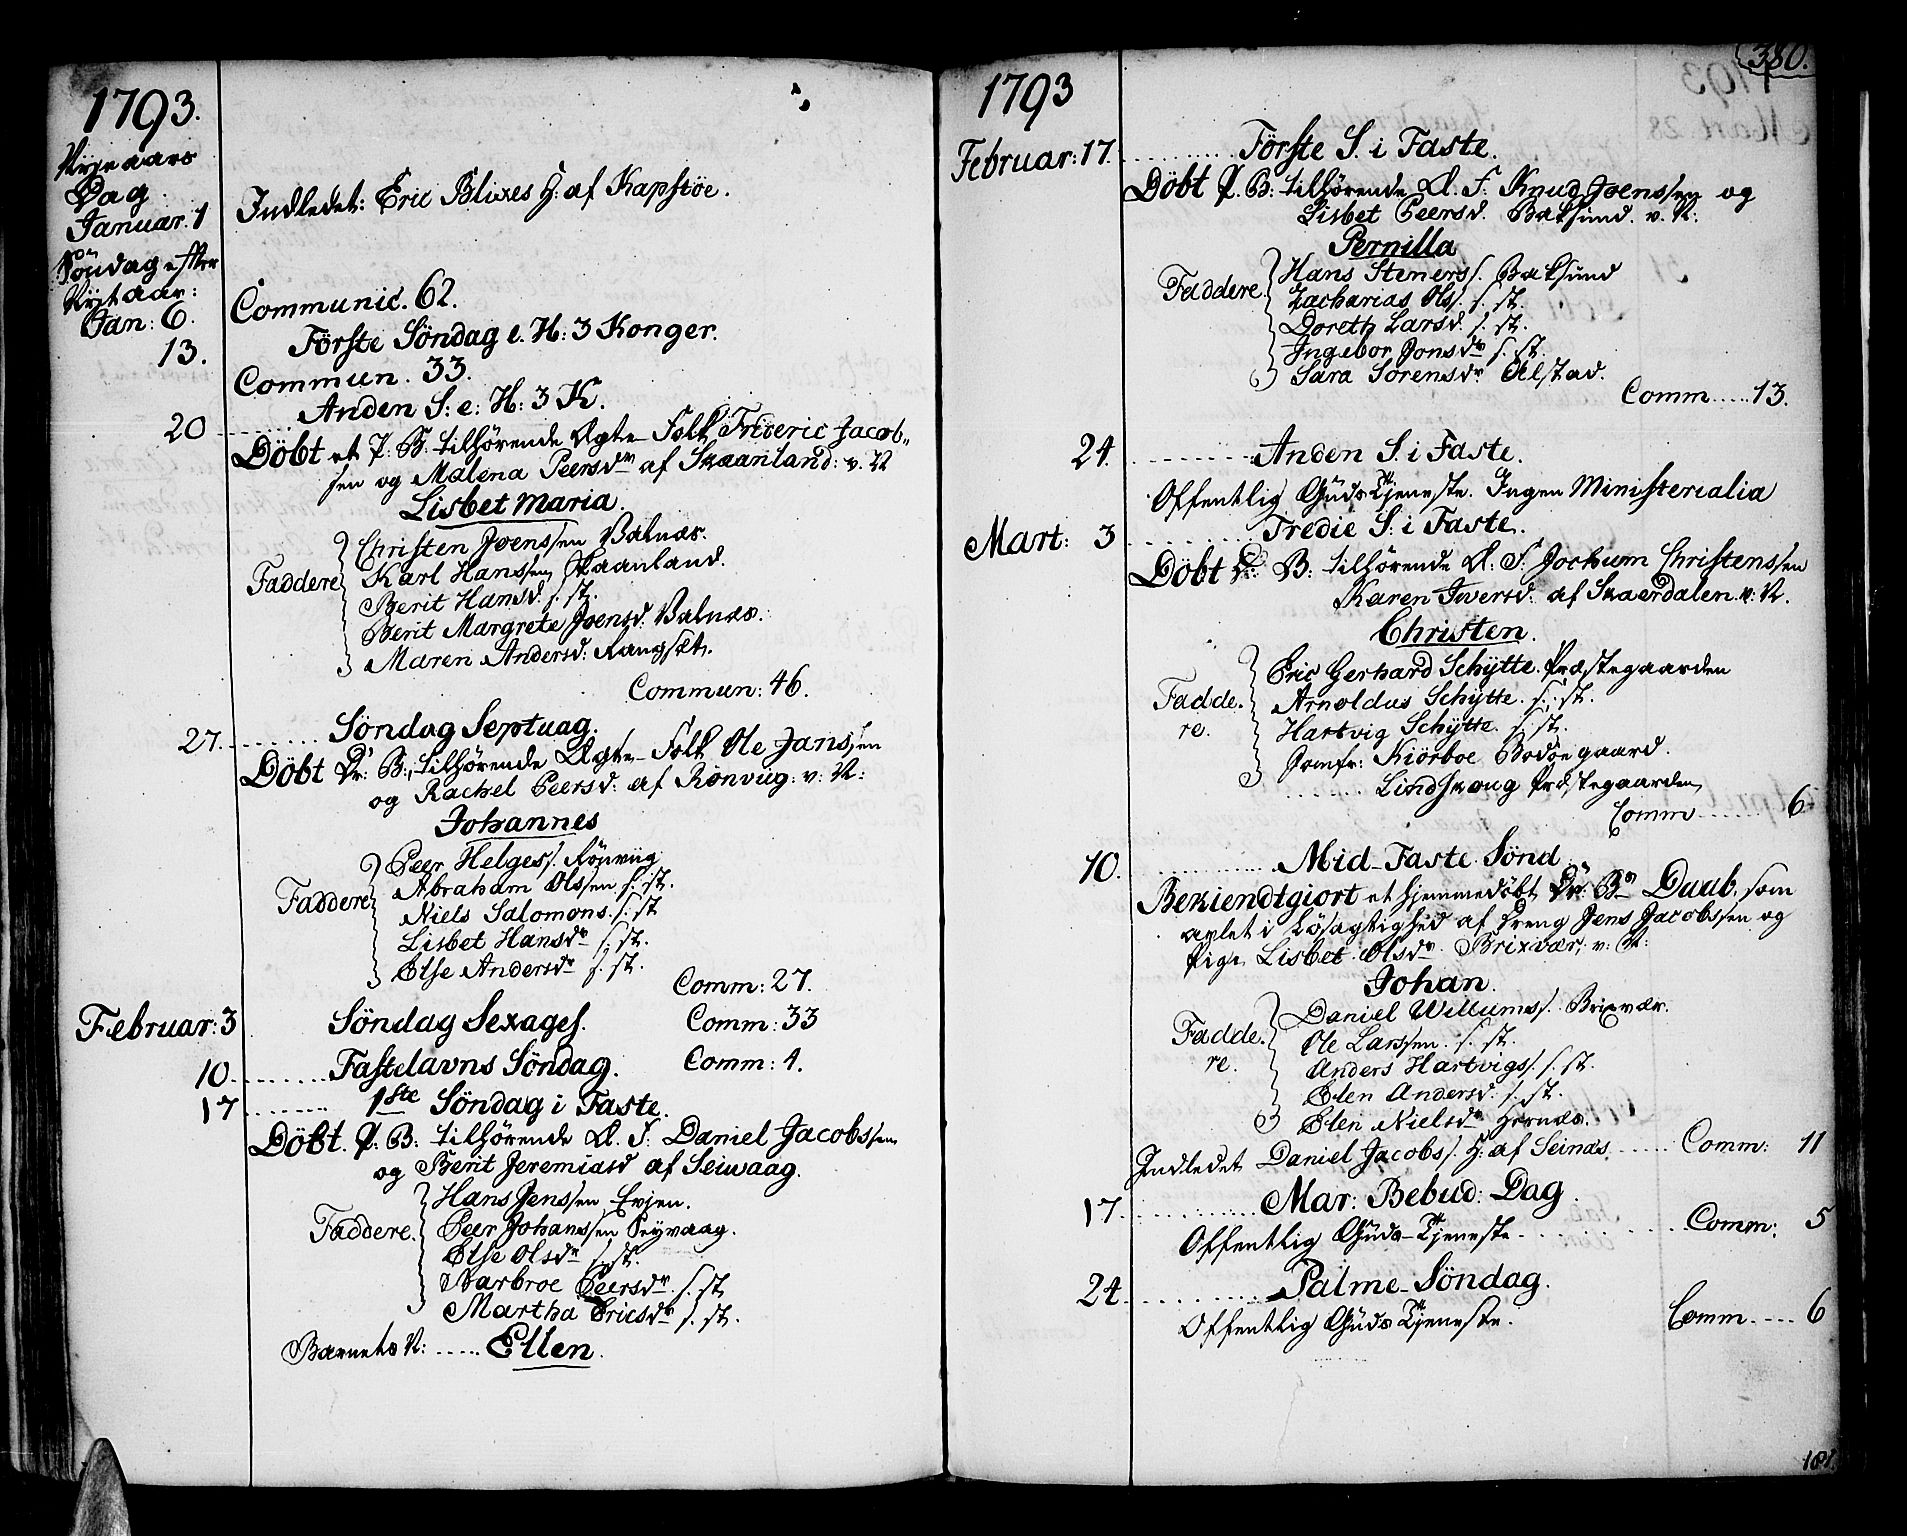 1793.
Nyeaars
Dag.
Januar. 1
Indledet: Eric Blixes H: af Kapstøe.
Söndag efter
Nyt aar:
Jan: 6.
Communic. 62.
13.
Förste Söndag e. H: 3 Konger.
Commun. 33.
Anden S: e: H: 3 K.
20 ........
Döbt et P. B. tilhörende Ægte-Folk Frideric Jacob„
sen og Malena Peersdr af Skaanland: v. N
Lisbet Maria.
Faddere
Christen Joenssen Valnæs.
Karl Hanssen Skaanland.
Berit Hansd. s. st.
Berit Margrete Joensd. Valnæs.
Maren Andersd: Langset.
Commun: 46.
27. ........ Söndag Septuag.
Döbt Dr: B:, tilhörende Ægte-Folk Ole Janssen
og Rachel Peersd: af Rönvug: v: N:
Johannes
Faddere
Peer Helgess. Rönviig
Abraham Olssen s. st.
Niels Salomons. s. st
Lisbet Hansdr s. st.
Else Andersdr s. st.
Comm: 27.
Februar: 3
Söndag Sexages. Comm: 33
10. ........ Fastelavns Söndag. Comm: 1.
17 ........ 1ste Söndag i Faste.
Döbt. P: B: tilhörende Æ. F: Daniel Jacobssen
og Berit Jeremiasd af Seiwaag.
Faddere.
Hans Jenssen Evjen.
Peer Johanssen Seyvaag.
Else Olsdr s. st.
Narbroe Peersdr s. st
Martha Ericsdr s. st.
Barnets N: ..... Ellen.
380.
1793
Februar: 17. ........ Förste S. i Faste.
Döbt P. B: tilhörende Æ. F. Knud Joenssen og
Lisbet Peersd. Baksund. v. N:
Pernilla
Faddere.
Hans Steners s. Baksund
Zacharias Ols s. s. st.
Doreth Larsd. s. st.
Ingebor Jonsdr s. st.
Sara Sorensdr Elstad.
Comm ..... 13.
24. ........ Anden S. i Faste.
Offentlig Guds Tjeneste. Ingen Ministerialia
Mart: 3 ........ Tredie S: i Faste.
Döbt Dr: B: tilhörende Æ. F. Jochum Christenssen
Karen Iversd. af Skaerdalen. v: N.
Christen.
Fadde.
re.
Eric Gerhard Schytte. Præstegaarden
Arnoldus Schytte. s. st.
Hartvig Schytte. s. st.
Jomfr: Kiörboe Bodöegaard.
........ Lindskoug Præstegaarden
Comm ...... 6
10. ........ Mid-Faste Sönd
Bekiendtgiort et hjemmedöbt Dr. Bs Daab, som
avlet i Lösagtighed af Dreng Jens Jacobssen og
Pige Lisbet Olsdr. Brixvær; v: N:
Johan.
Fadde.
re.
Daniel Willums s. Brixvær.
Ole Larssen. s. st.
Anders Hartvigs s. s. st.
Elen Andersd. s. st.
Elen Nielsdr Hernæs.
Indledet Daniel Jacobs s. H: af Seinæs. ...... Comm: 11
17. ........ Mar: Bebud: Dag.
Offentlig Guds-Tjeneste. ........ Comm: 5
24. ........ Palme-Söndag.
Offentlig Guds Tjeneste. Comm .... 6
181